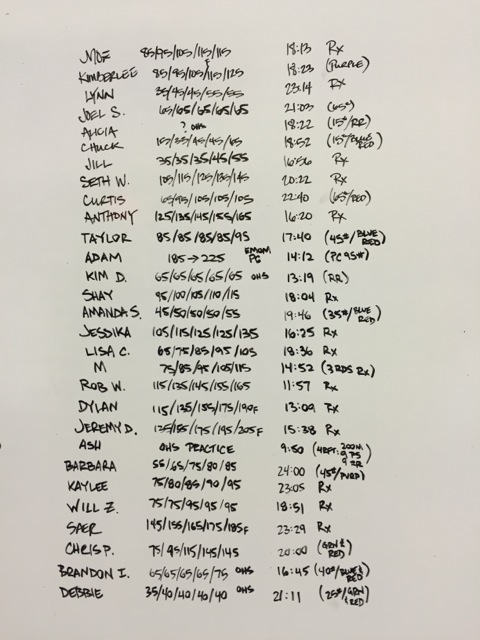 MOE 85/95/105/115/115 18:13 Rx
KIMBERLEE 85/95/105/115/125 18:23 (PURPLE)
LYNN 35/45/45/55/55 23:14 Rx
JOEL S. 65/65/65/65/65 21:03 (65#)
ALICIA ? OHS 18:22 (15#/RR)
CHUCK 45/45/65 18:52 (15#/BLUE RED)
JILL 35/35/35/45/55 16:56 Rx
SETH W. 105/115/125/135/145 20:22 Rx
CURTIS 65/95/105/105/105 22:40 (65#/RED)
ANTHONY 125/135/145/155/165 16:20 Rx
TAYLOR 85/85/85/85/95 17:40 (45#/BLUE RED)
ADAM 185→225 EMOM PC 14:12 (PC 95#)
KIM D. 65/65/65/65/65 OHS 13:19 (RR)
SHAY 95/100/105/110/115 18:04 Rx
AMANDA S. 45/50/50/50/55 19:46 (35#/BLUE RED)
JESSIKA 105/115/125/125/135 16:25 Rx
LISA C. 65/75/85/95/105 18:36 Rx
M 75/85/95/105/115 14:52 (3 RDS Rx)
ROB W. 115/135/145/155/165 11:57 Rx
DYLAN 115/135/155/175/190F 13:09 Rx
JEREMY D. 135/155/175/195/205F 15:38 Rx
ASH OHS PRACTICE 9:50 (4RFT: 200M 9 PS 9 RR)
BARBARA 55/65/75/80/85 24:00 (45#/PURP)
KAYLEE 75/80/85/90/95 23:05 Rx
WILL Z. 75/75/95/95/95 18:51 Rx
SAER 145/155/165/175/185F 23:29 Rx
CHRIS P. 75/95/115/145/145 20:00 (GRN & RED)
BRANDON I. 65/65/65/65/75 OHS 16:45 (40#/BLUE & RED)
DEBBIE 35/40/40/40/40 OHS 21:11 (25#/GRN & RED)